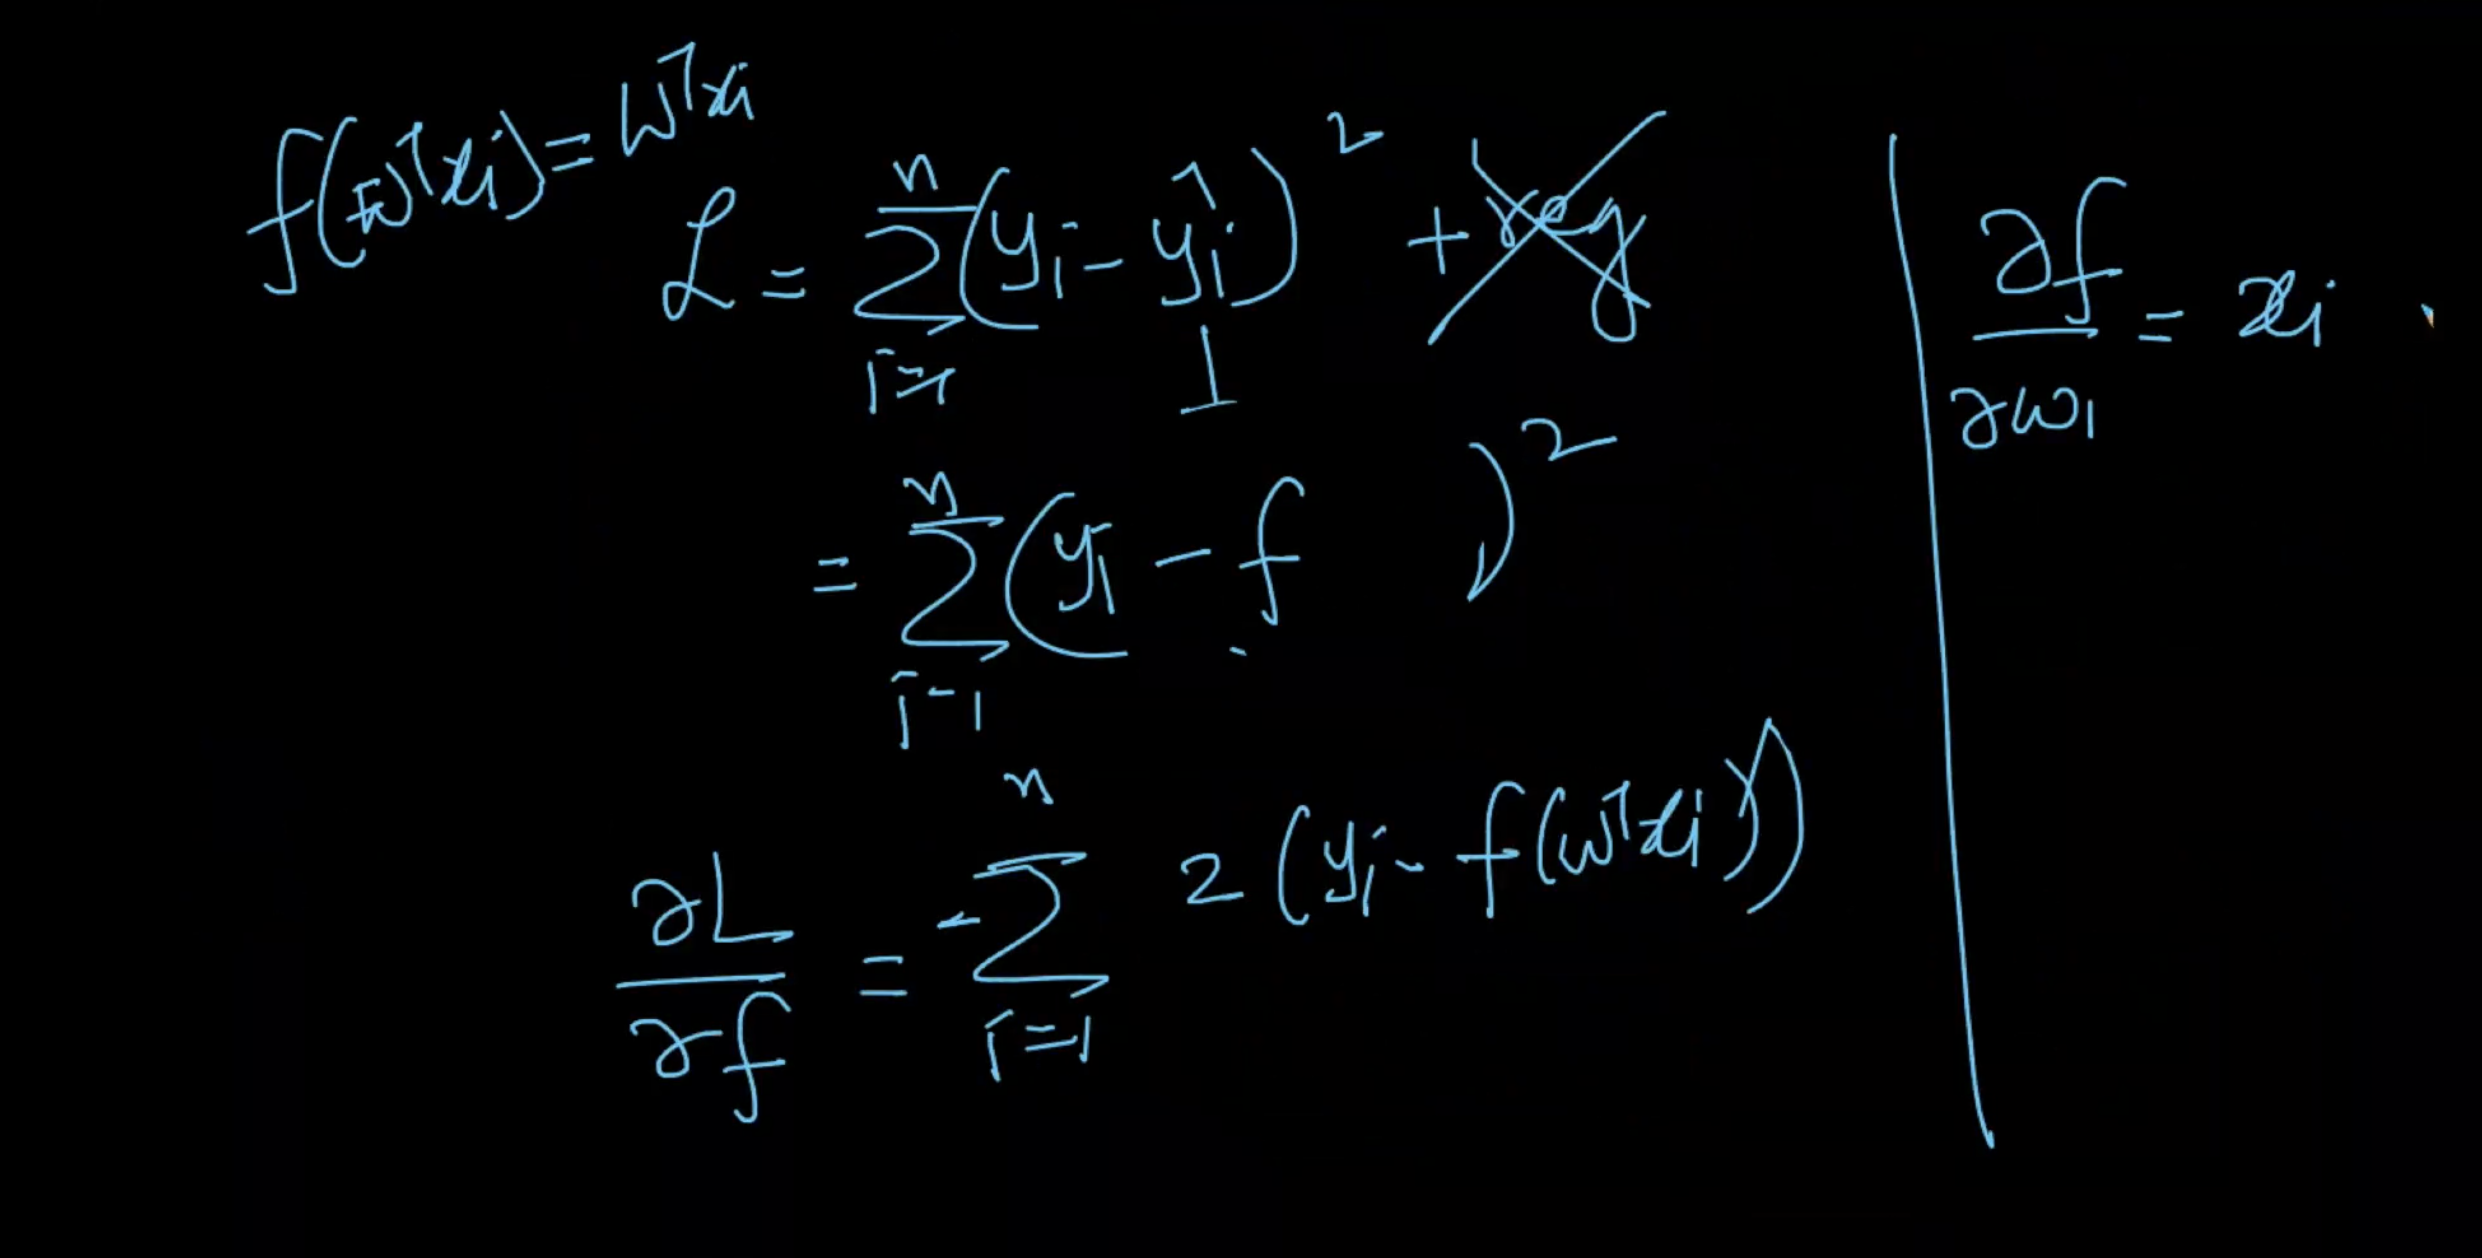 f(wᵀxᵢ) = wᵀxᵢ
L = Σ_{i=1}^{n} (yᵢ - ŷᵢ)² + reg
= Σ_{i=1}^{n} (yᵢ - f )²
∂L/∂f = -Σ_{i=1}^{n} 2(yᵢ - f(wᵀxᵢ))
∂f/∂w₁ = xᵢ